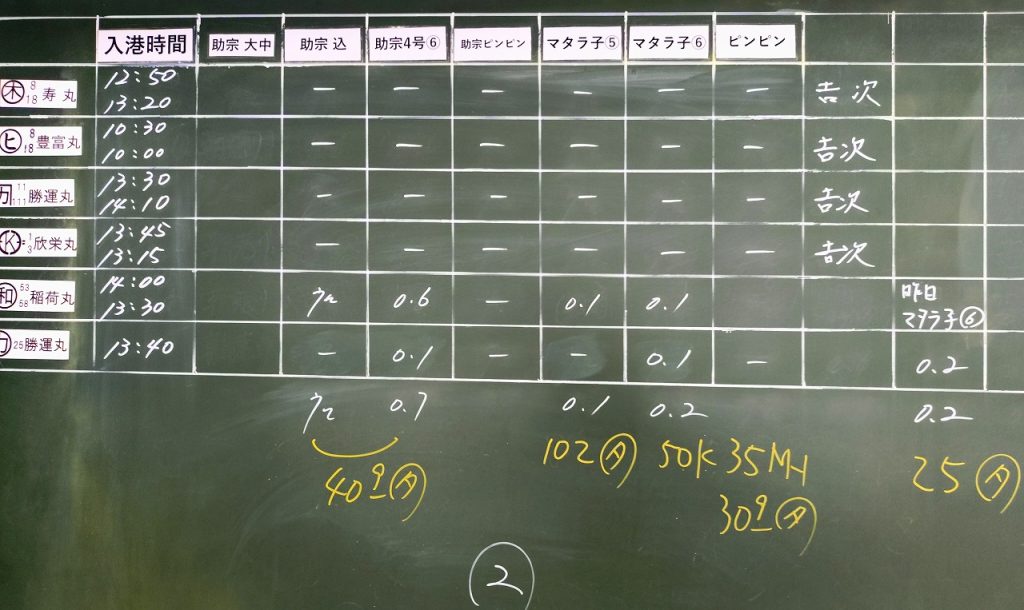 入港時間 助宗 大中 助宗 込 助宗4号⑥ 助宗ピンピン マタラ子⑤ マタラ子⑥ ピンピン
12:50
㊍ 8 18 寿丸 — — — — — — 吉次
13:20
10:30
ヒ 8 18 豊富丸 — — — — — — 吉次
10:00
13:30
11 111 勝運丸 — — — — — — 吉次
14:10
13:45
K 1 3 欣栄丸 — — — — — 吉次
13:15
14:00 昨日
和 53 58 稲荷丸 0.6 — 0.1 0.1 マタラ子⑥
13:30
25 勝運丸 13:40 — 0.1 — — 0.1 — 0.2
0.7 0.1 0.2 0.2
102 50K 35 25
40
30
②